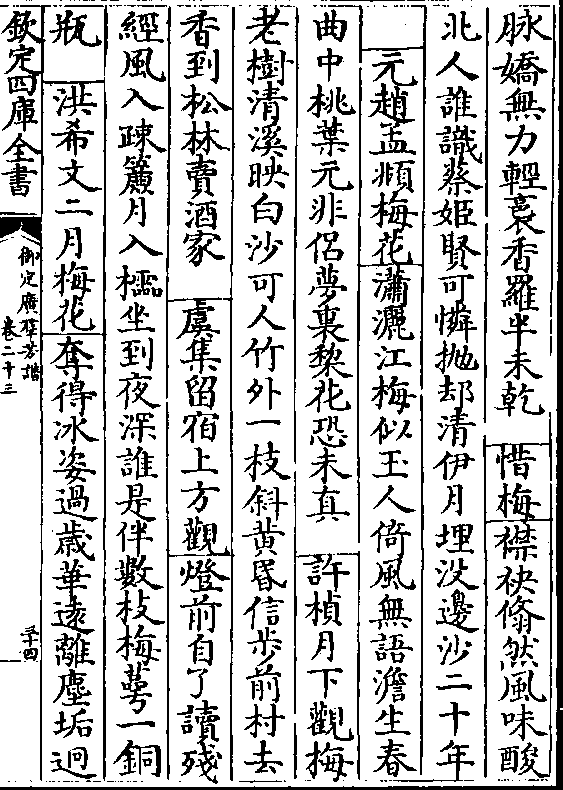 脉嬌無力輕裛香羅半未乾　惜梅襟袂翛然風味酸
北人誰識蔡姬賢可憐抛却清伊月埋没邊沙二十年
元趙孟頫梅花瀟灑江梅似玉人倚風無語澹生春
曲中桃葉元非侣夢裏棃花恐未真　許楨月下觀梅
老樹清溪映白沙可人竹外一枝斜黄昏信歩前村去
香到松林賣酒家　虞集留宿上方觀燈前自了讀殘
經風入疎簾月入櫺坐到夜深誰是伴數枝梅萼一銅
瓶　洪希文二月梅花奪得冰姿過歳華逺離塵垢迥
欽定四庫全書
御定廣羣芳譜
卷二十三
三十四